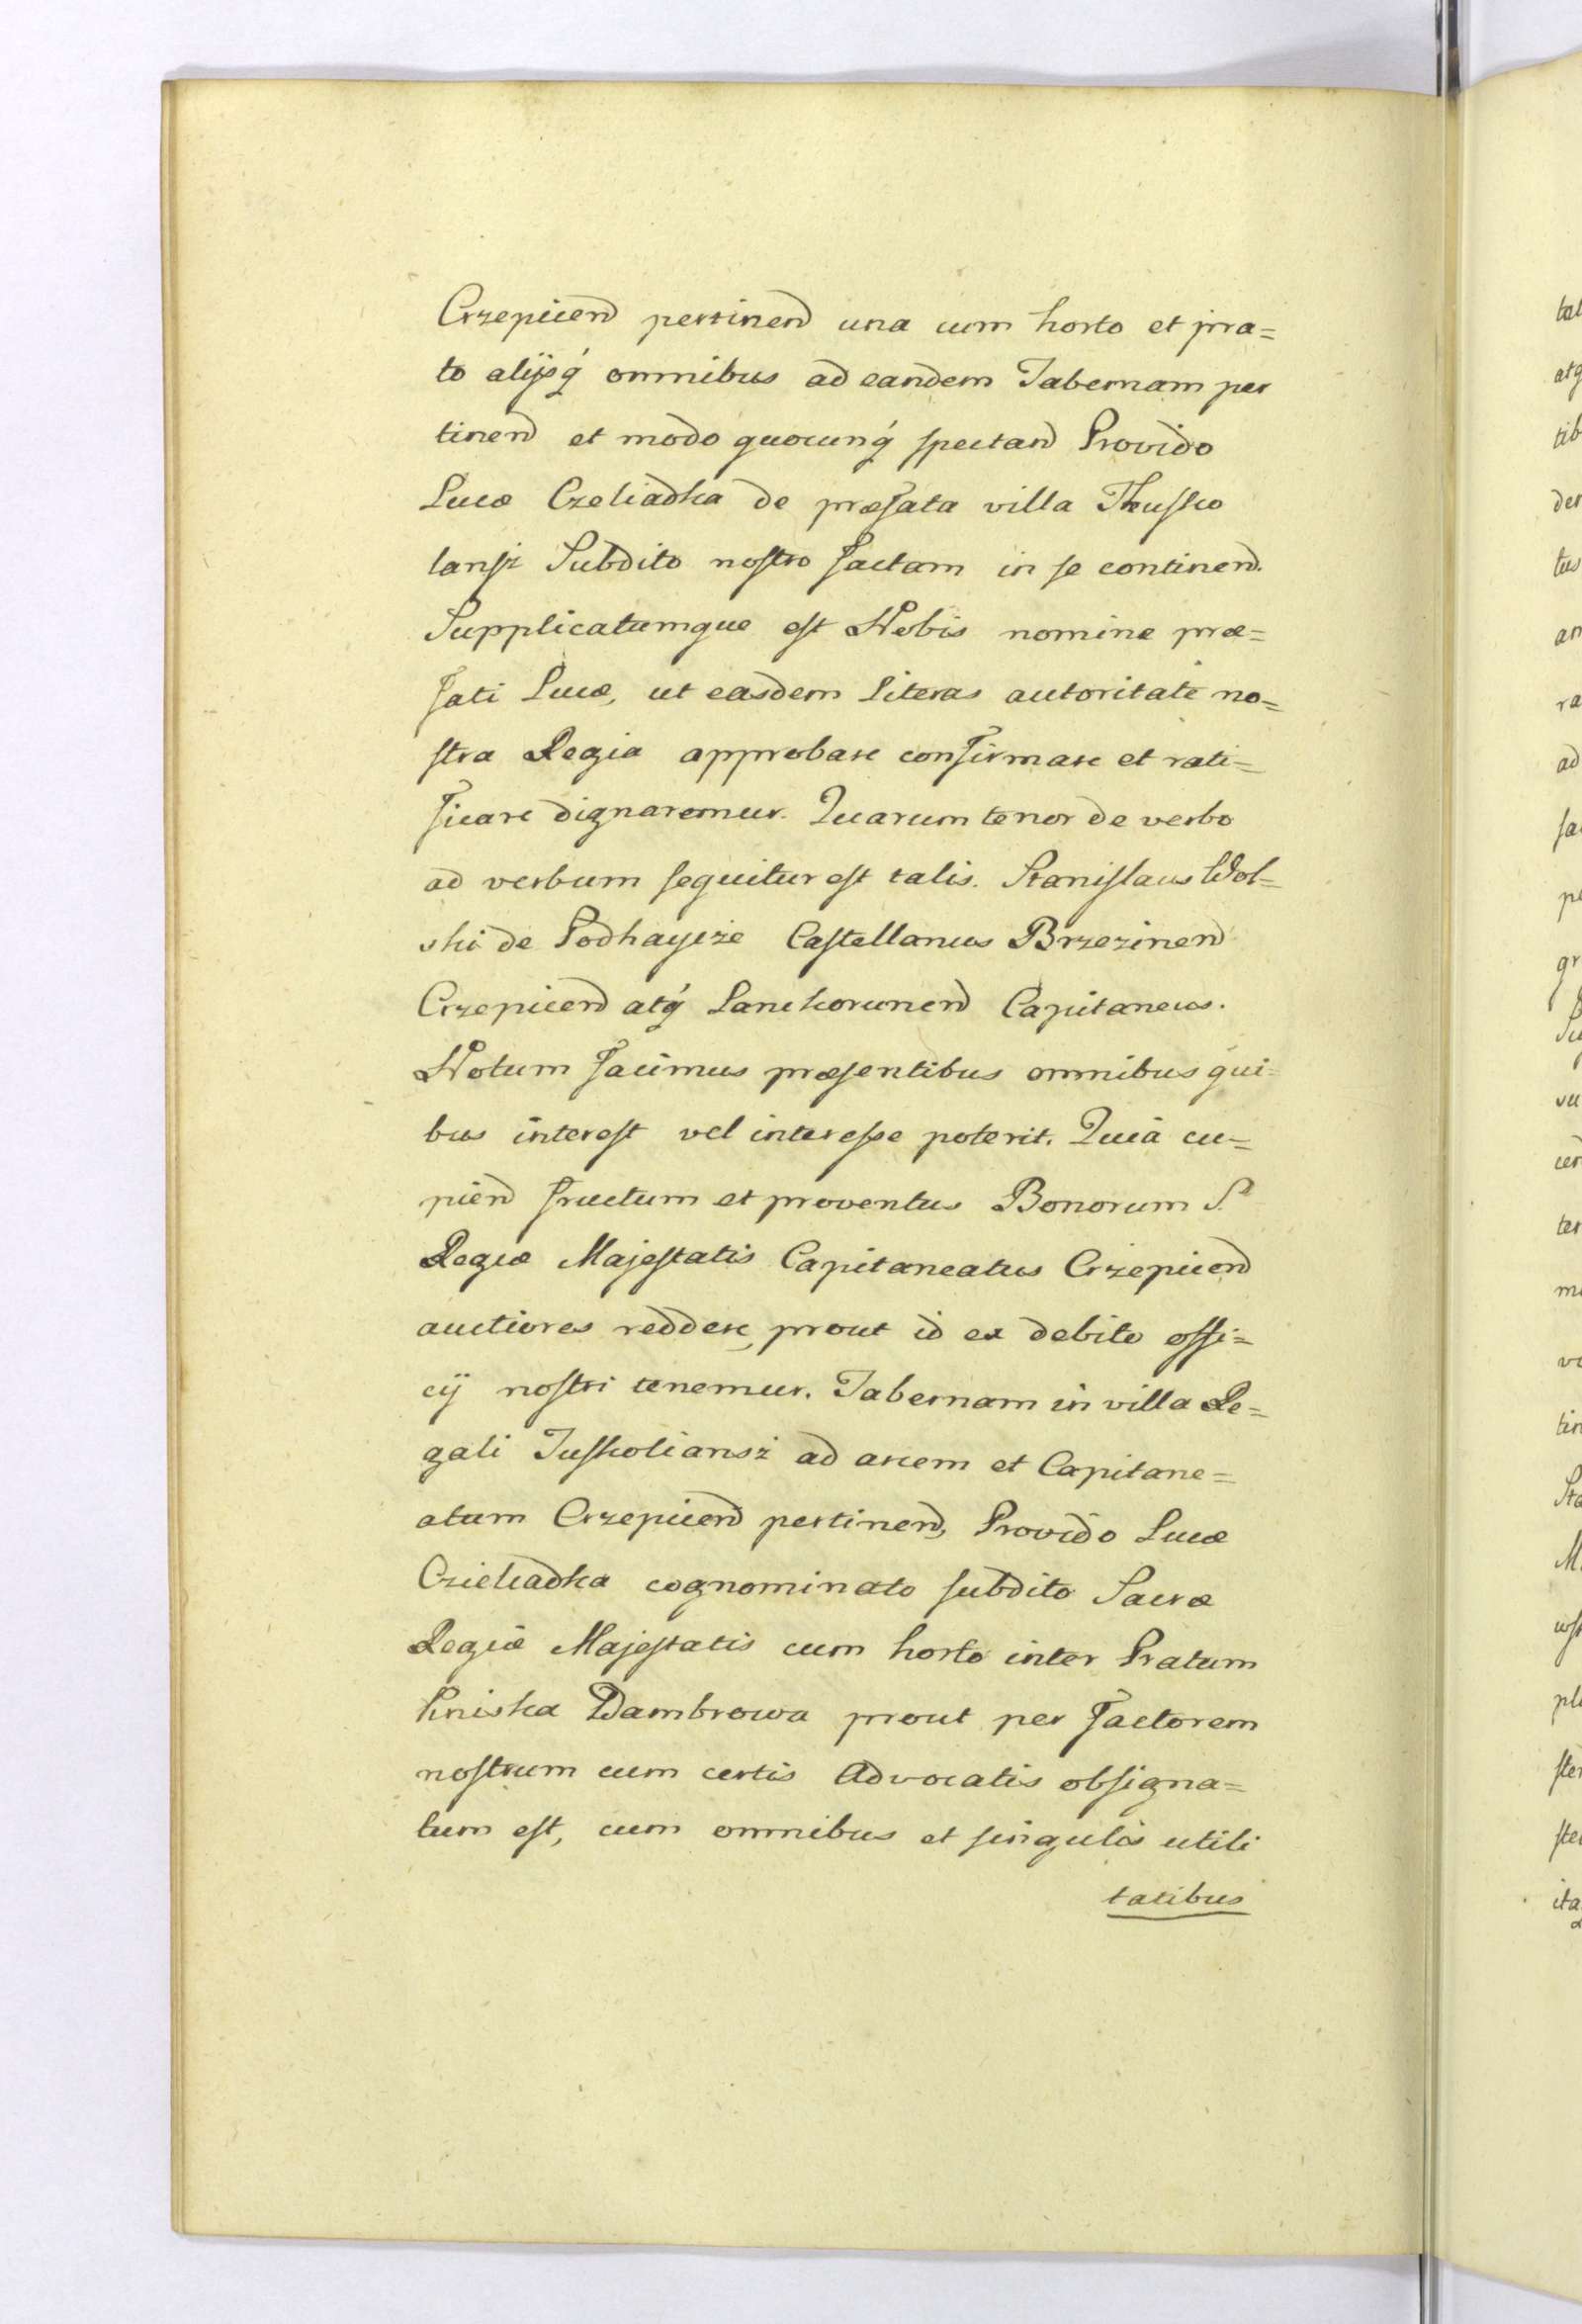 Crzepicen̄ pertinen̄ una cum horto et pra=
to alijsq́ omnibus ad eandem Tabernam per
tinen̄ et modo quocunq́ spectan̄ Provido
Lucæ Czeliadka de præfata villa Thussko
lansi Subdito nostro factam in se continen̄.
Supplicatumque est Nobis nomine præ=
fati Lucæ, ut easdem Literas autoritate no=
stra Regia approbare confirmare et rati=
ficare dignaremur. Quarum tenor de verbo
ad verbum sequitur est talis. Stanislaus Wol=
ski de Podhaycze Castellanus Brzezinen̄
Crzepicen̄ atq́ Lanckorunen̄ Capitaneus.
Notum facimus præsentibus omnibus qui=
bus interest vel interesse poterit. Quia cu=
pien̄ fructum et proventus Bonorum S.
Regiæ Majestatis Capitaneatus Crzepicen̄
auctiores reddere, prout id ex debito offi=
cij nostri tenemur. Tabernam in villa Re=
gali Tusskoliansi ad arcem et Capitane=
atum Crzepicen̄ pertinen̄, Provido Lucæ
Czieliadka cognominato subdito Sacræ
Regiæ Majestatis cum horto inter Pratum
Kniska Dambrowa prout per factorem
nostrum cum certis Advocatis obsigna=
tum est, cum omnibus et singulis utili
tatibus